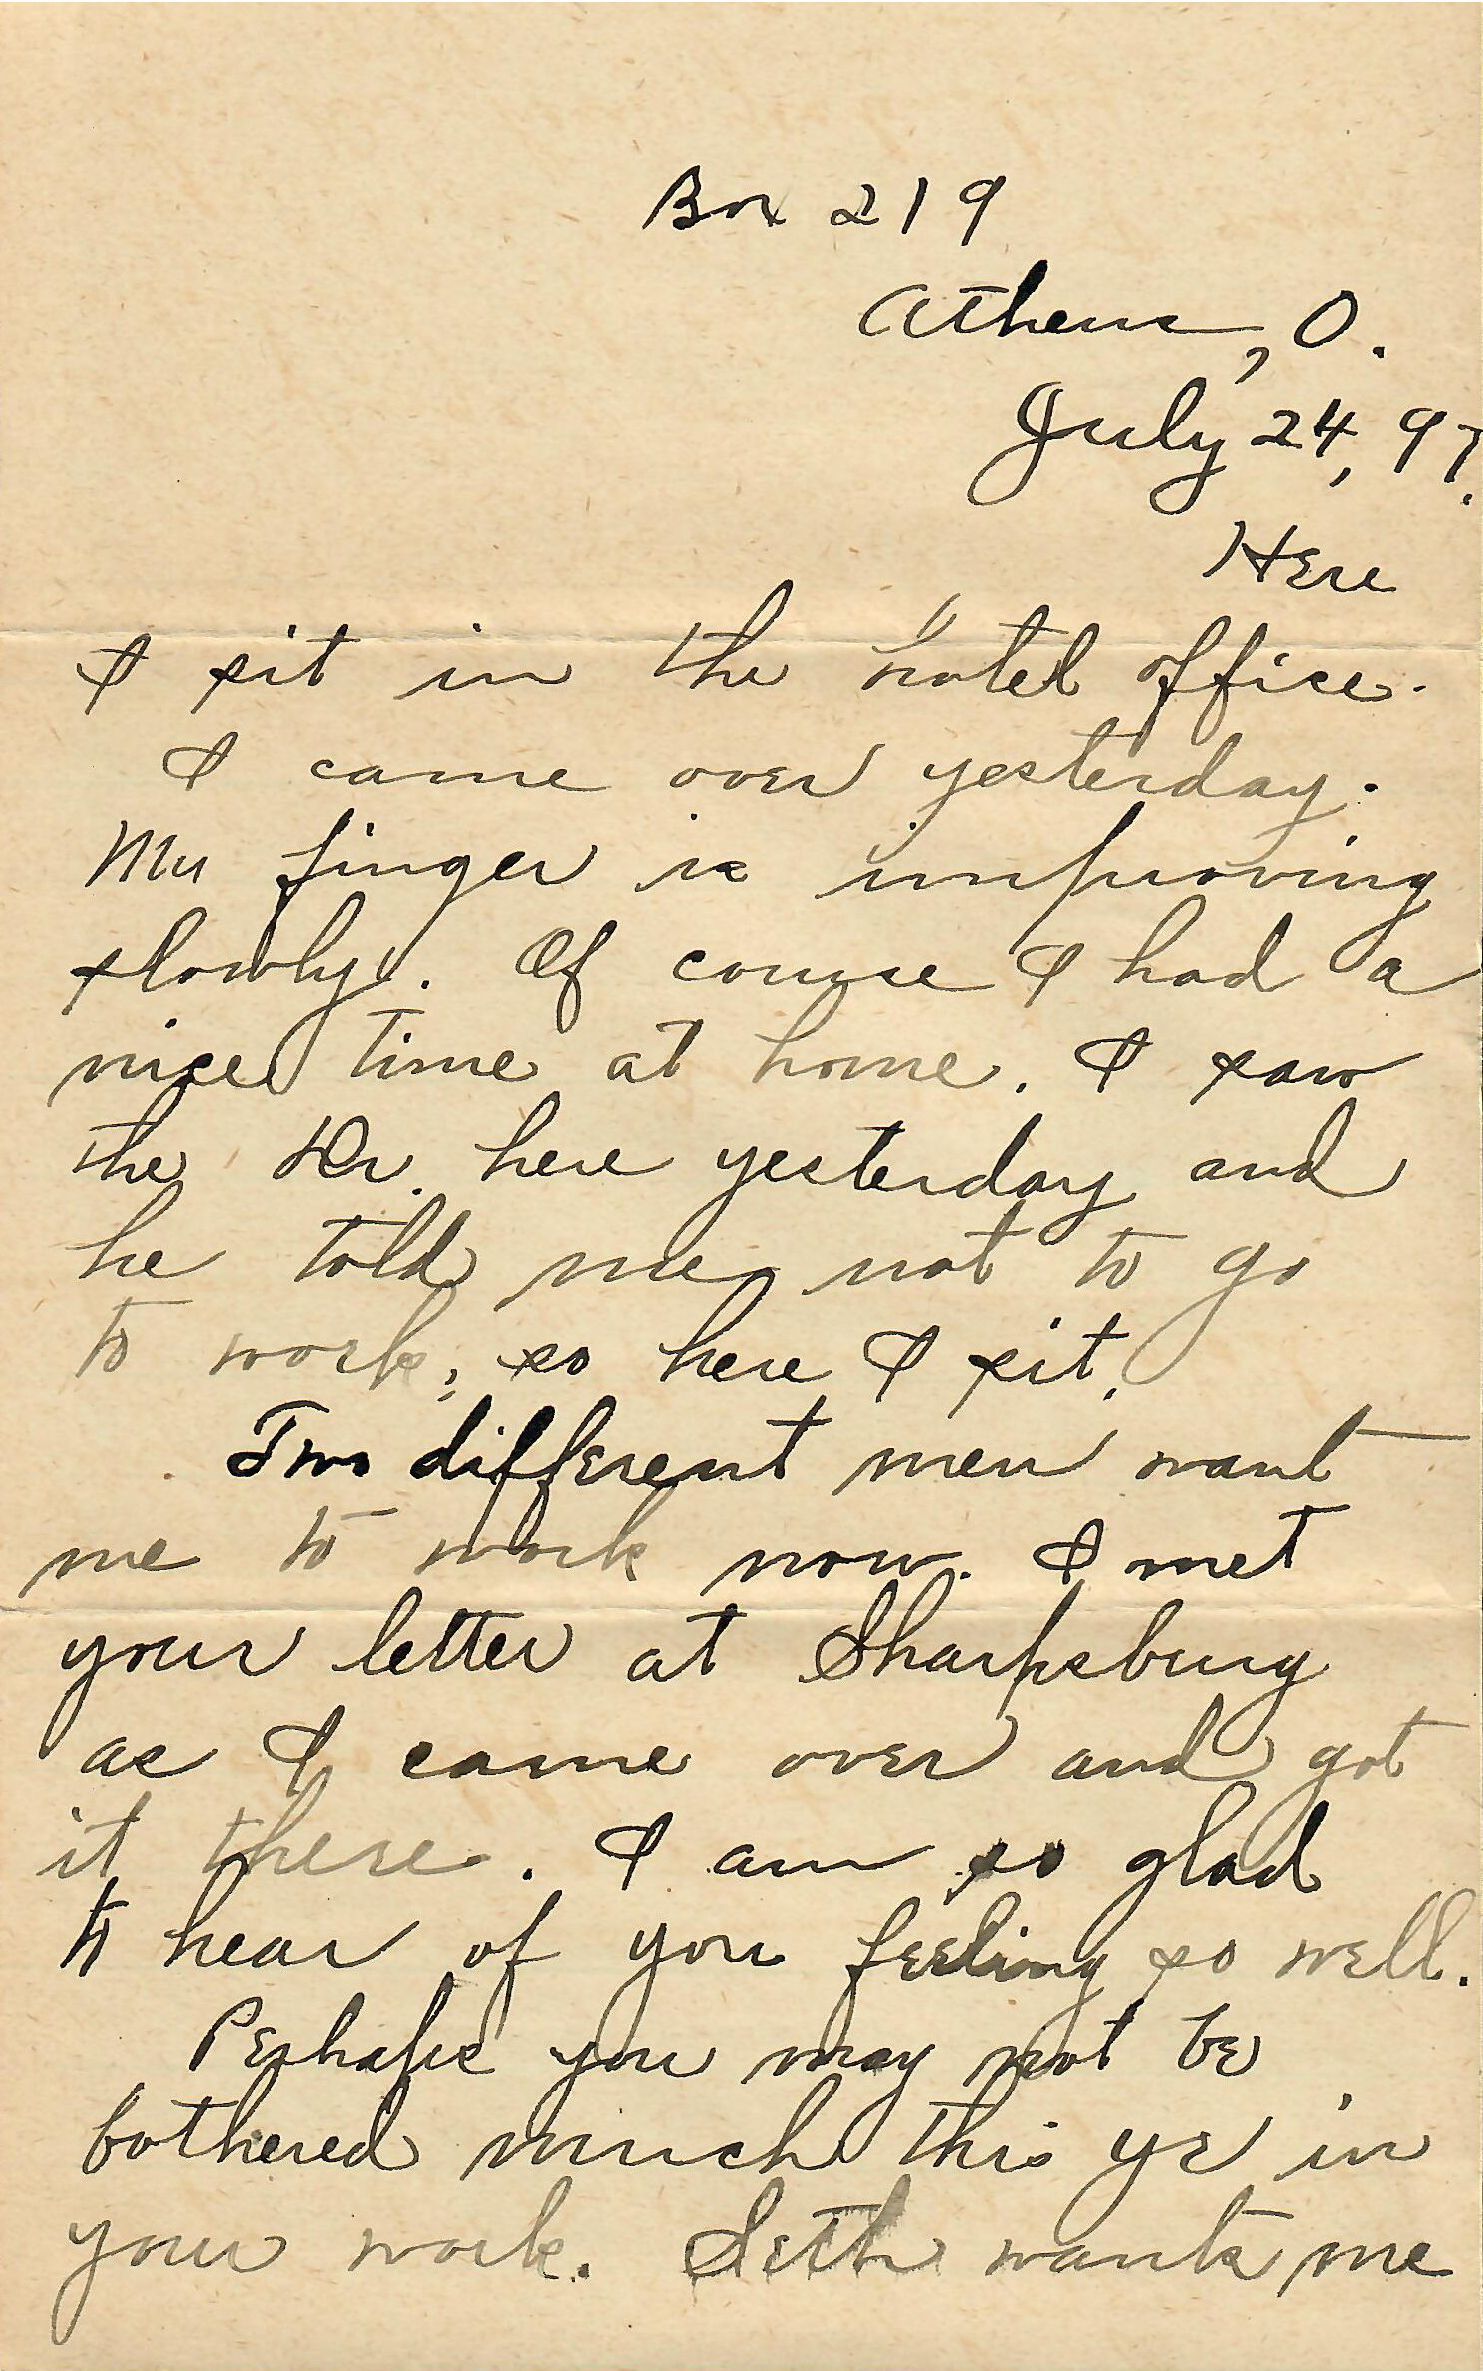 Box 219
Athens, O.
July 24, 97.
Here
I sit in the hotel office.
I came over yesterday.
My finger is improving
slowly. Of course I had a
nice time at home. I saw
the Dr. here yesterday and
he told me not to go
to work, so here I sit.
Two different men want
me to work now. I met
your letter at Sharpsburg
as I came over and got
it there. I am so glad
to hear of you feeling so well.
Perhaps you may not be
bothered much this yr in
your work. Seth wants me